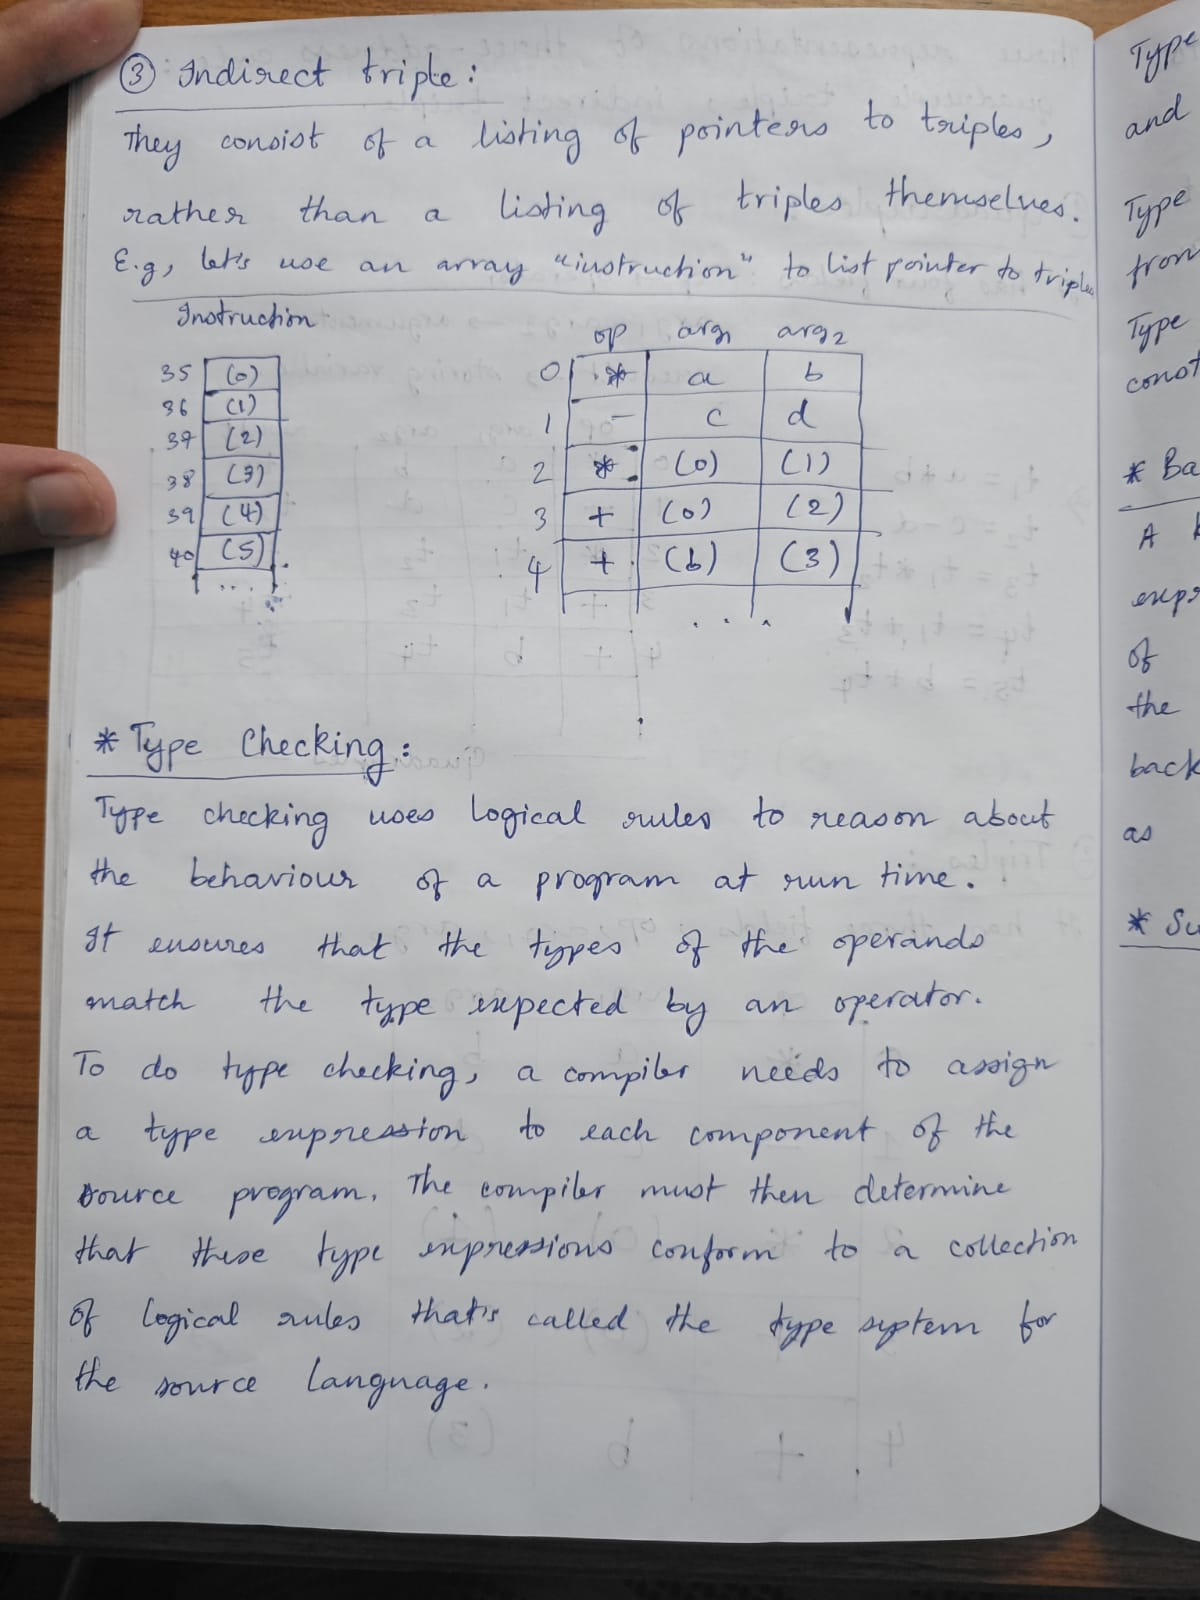 ③ Indirect triple:
They consist of a listing of pointers to triples,
rather than a listing of triples themselves.
E.g, let's use an array "instruction" to list pointer to triples
Instruction
35 (0)
36 (1)
37 (2)
38 (3)
39 (4)
40 (5)
. . . .
op arg1 arg2
0 * a b
1 - c d
2 * (0) (1)
3 + (0) (2)
4 + (b) (3)
. . .
* Type Checking:
Type checking uses logical rules to reason about
the behaviour of a program at run time.
It ensures that the types of the operands
match the type expected by an operator.
To do type checking, a compiler needs to assign
a type expression to each component of the
source program. The compiler must then determine
that these type expressions conform to a collection
of logical rules that's called the type system for
the source language.
Type
and
Type
from
Type
const
* Ba
A
expr
of
the
back
as
* Su